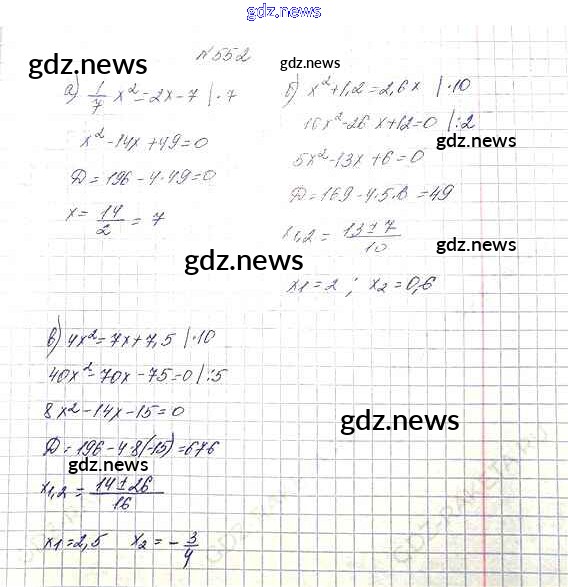 gdz.news
№552
gdz.news
а) 1/7 x² = 2x - 7 | · 7
x² - 14x + 49 = 0
Д = 196 - 4 · 49 = 0
x = 14/2 = 7
б) x² + 1,2 = 2,6x | · 10
10x² - 26x + 12 = 0 | : 2
gdz.news
5x² - 13x + 6 = 0
Д = 169 - 4 · 5 · 6 = 49
x1,2 = 13 ± 7 / 10
gdz.news
gdz.news
x1 = 2 ; x2 = 0,6
в) 4x² = 7x + 7,5 | · 10
40x² - 70x - 75 = 0 | : 5
8x² - 14x - 15 = 0
gdz.news
Д = 196 - 4 · 8 (-15) = 676
gdz.news
x1,2 = 14 ± 26 / 16
x1 = 2,5 x2 = - 3/4
GDZ-RAKETA.RU